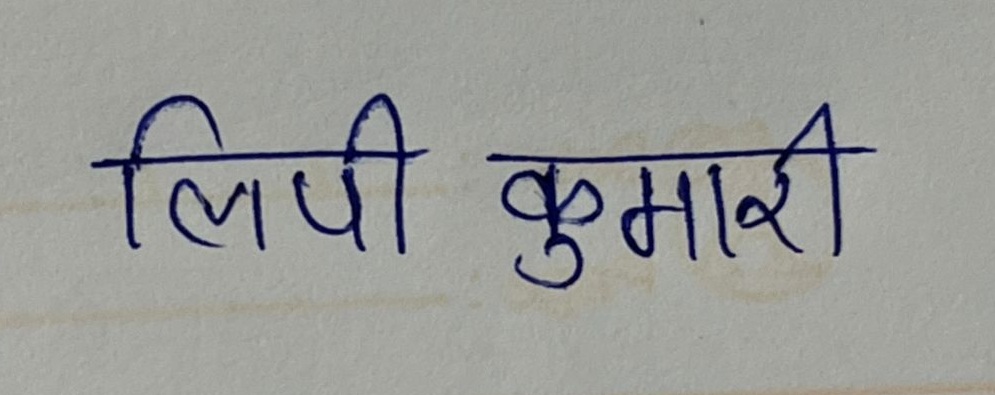 लिपी कुमारी